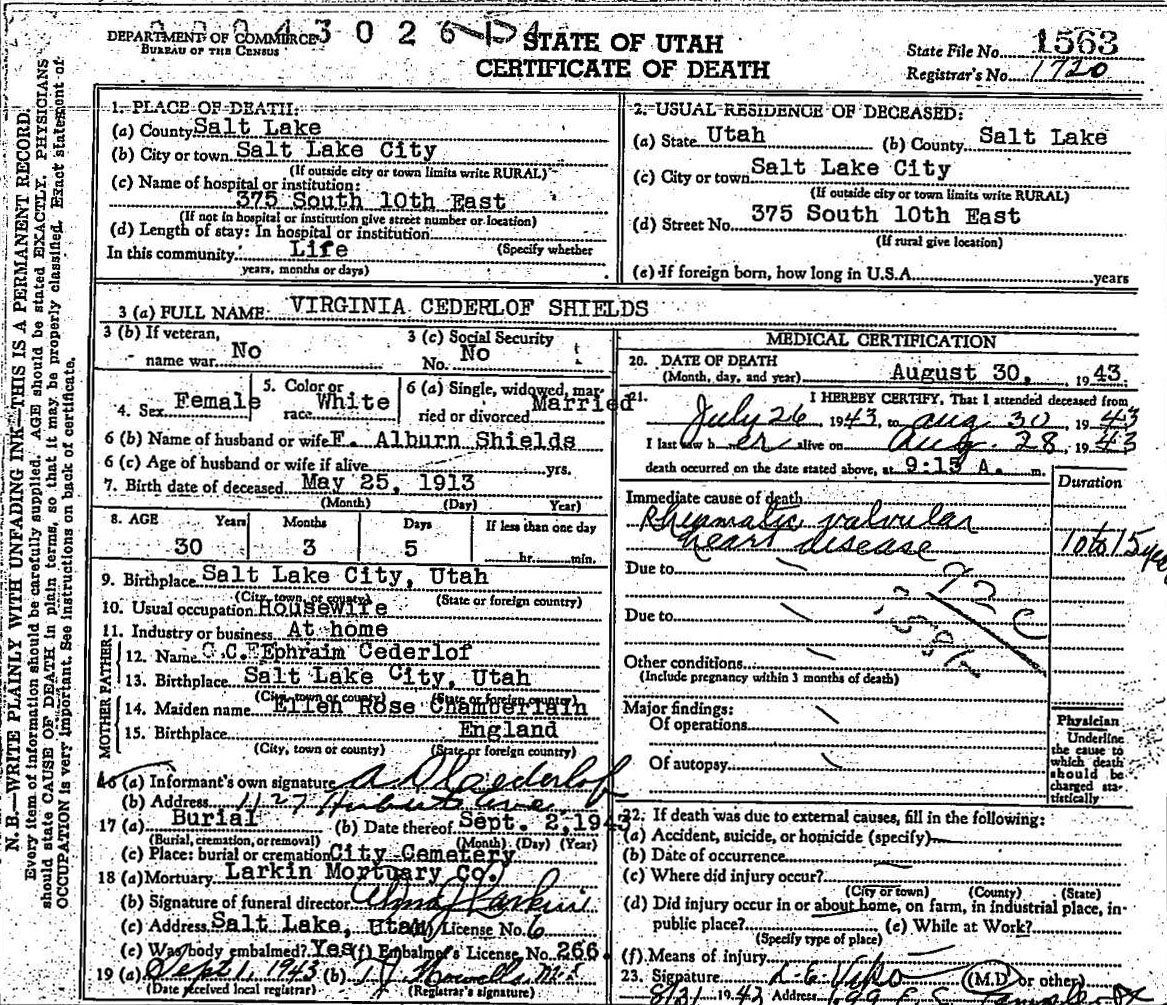 DEPARTMENT OF COMMERCE
BUREAU OF THE CENSUS
STATE OF UTAH
CERTIFICATE OF DEATH
State File No. 1563
Registrar's No. 1720
N. B.—WRITE PLAINLY WITH UNFADING INK—THIS IS A PERMANENT RECORD.
Every item of information should be carefully supplied. AGE should be stated EXACTLY. PHYSICIANS
should state CAUSE OF DEATH in plain terms, so that it may be properly classified. Exact statement of
OCCUPATION is very important. See instructions on back of certificate.
1. PLACE OF DEATH:
(a) County Salt Lake
(b) City or town Salt Lake City
(If outside city or town limits write RURAL)
(c) Name of hospital or institution:
375 South 10th East
(If not in hospital or institution give street number or location)
(d) Length of stay: In hospital or institution
In this community Life (Specify whether
years, months or days)
2. USUAL RESIDENCE OF DECEASED:
(a) State Utah (b) County Salt Lake
(c) City or town Salt Lake City
(If outside city or town limits write RURAL)
(d) Street No. 375 South 10th East
(If rural give location)
(e) If foreign born, how long in U.S.A. years
3 (a) FULL NAME: VIRGINIA CEDERLOF SHIELDS
3 (b) If veteran, name war No
3 (c) Social Security No. No
4. Sex Female
5. Color or race White
6 (a) Single, widowed, married or divorced Married
6 (b) Name of husband or wife F. Alburn Shields
6 (c) Age of husband or wife if alive yrs.
7. Birth date of deceased May 25, 1913
(Month) (Day) Year)
8. AGE Years Months Days If less than one day
30 3 5 hr. min.
9. Birthplace Salt Lake City, Utah
(City, town, or county) (State or foreign country)
10. Usual occupation Housewife
11. Industry or business At home
FATHER
12. Name C.C.E Ephraim Cederlof
13. Birthplace Salt Lake City, Utah
(City, town or county) (State or foreign country)
MOTHER
14. Maiden name Ellen Rose Chamberlain
15. Birthplace England
(City, town or county) (State or foreign country)
16 (a) Informant's own signature A D Cederlof
(b) Address 1127 Ave
17 (a) Burial (b) Date thereof Sept. 2, 1943
(Burial, cremation, or removal) (Month) (Day) (Year)
(c) Place: burial or cremation City Cemetery
18 (a) Mortuary Larkin Mortuary Co.
(b) Signature of funeral director Alma J Larkin
(c) Address Salt Lake, Utah License No. 6
(e) Was body embalmed? Yes (f) Embalmer's License No. 266.
19 (a) Sept 1, 1943 (b) T J Howells M.D
(Date received local registrar) (Registrar's signature)
MEDICAL CERTIFICATION
20. DATE OF DEATH
(Month, day, and year) August 30, 1943
21. I HEREBY CERTIFY, That I attended deceased from
July 26 1943, to Aug 30, 1943
I last saw her alive on Aug. 28, 1943
death occurred on the date stated above, at 9:15 A. m.
Duration
Immediate cause of death
Rheumatic valvular
heart disease 10 to 15 yrs
Due to
92 C
Due to
Other conditions
(Include pregnancy within 3 months of death)
Major findings:
Of operations
Of autopsy
Physician
Underline
the cause to
which death
should be
charged statistically
22. If death was due to external causes, fill in the following:
(a) Accident, suicide, or homicide (specify)
(b) Date of occurrence
(c) Where did injury occur?
(City or town) (County) (State)
(d) Did injury occur in or about home, on farm, in industrial place, in
public place? (e) While at Work?
(Specify type of place)
(f) Means of injury
23. Signature (M.D. or other)
8/31 1943 Address